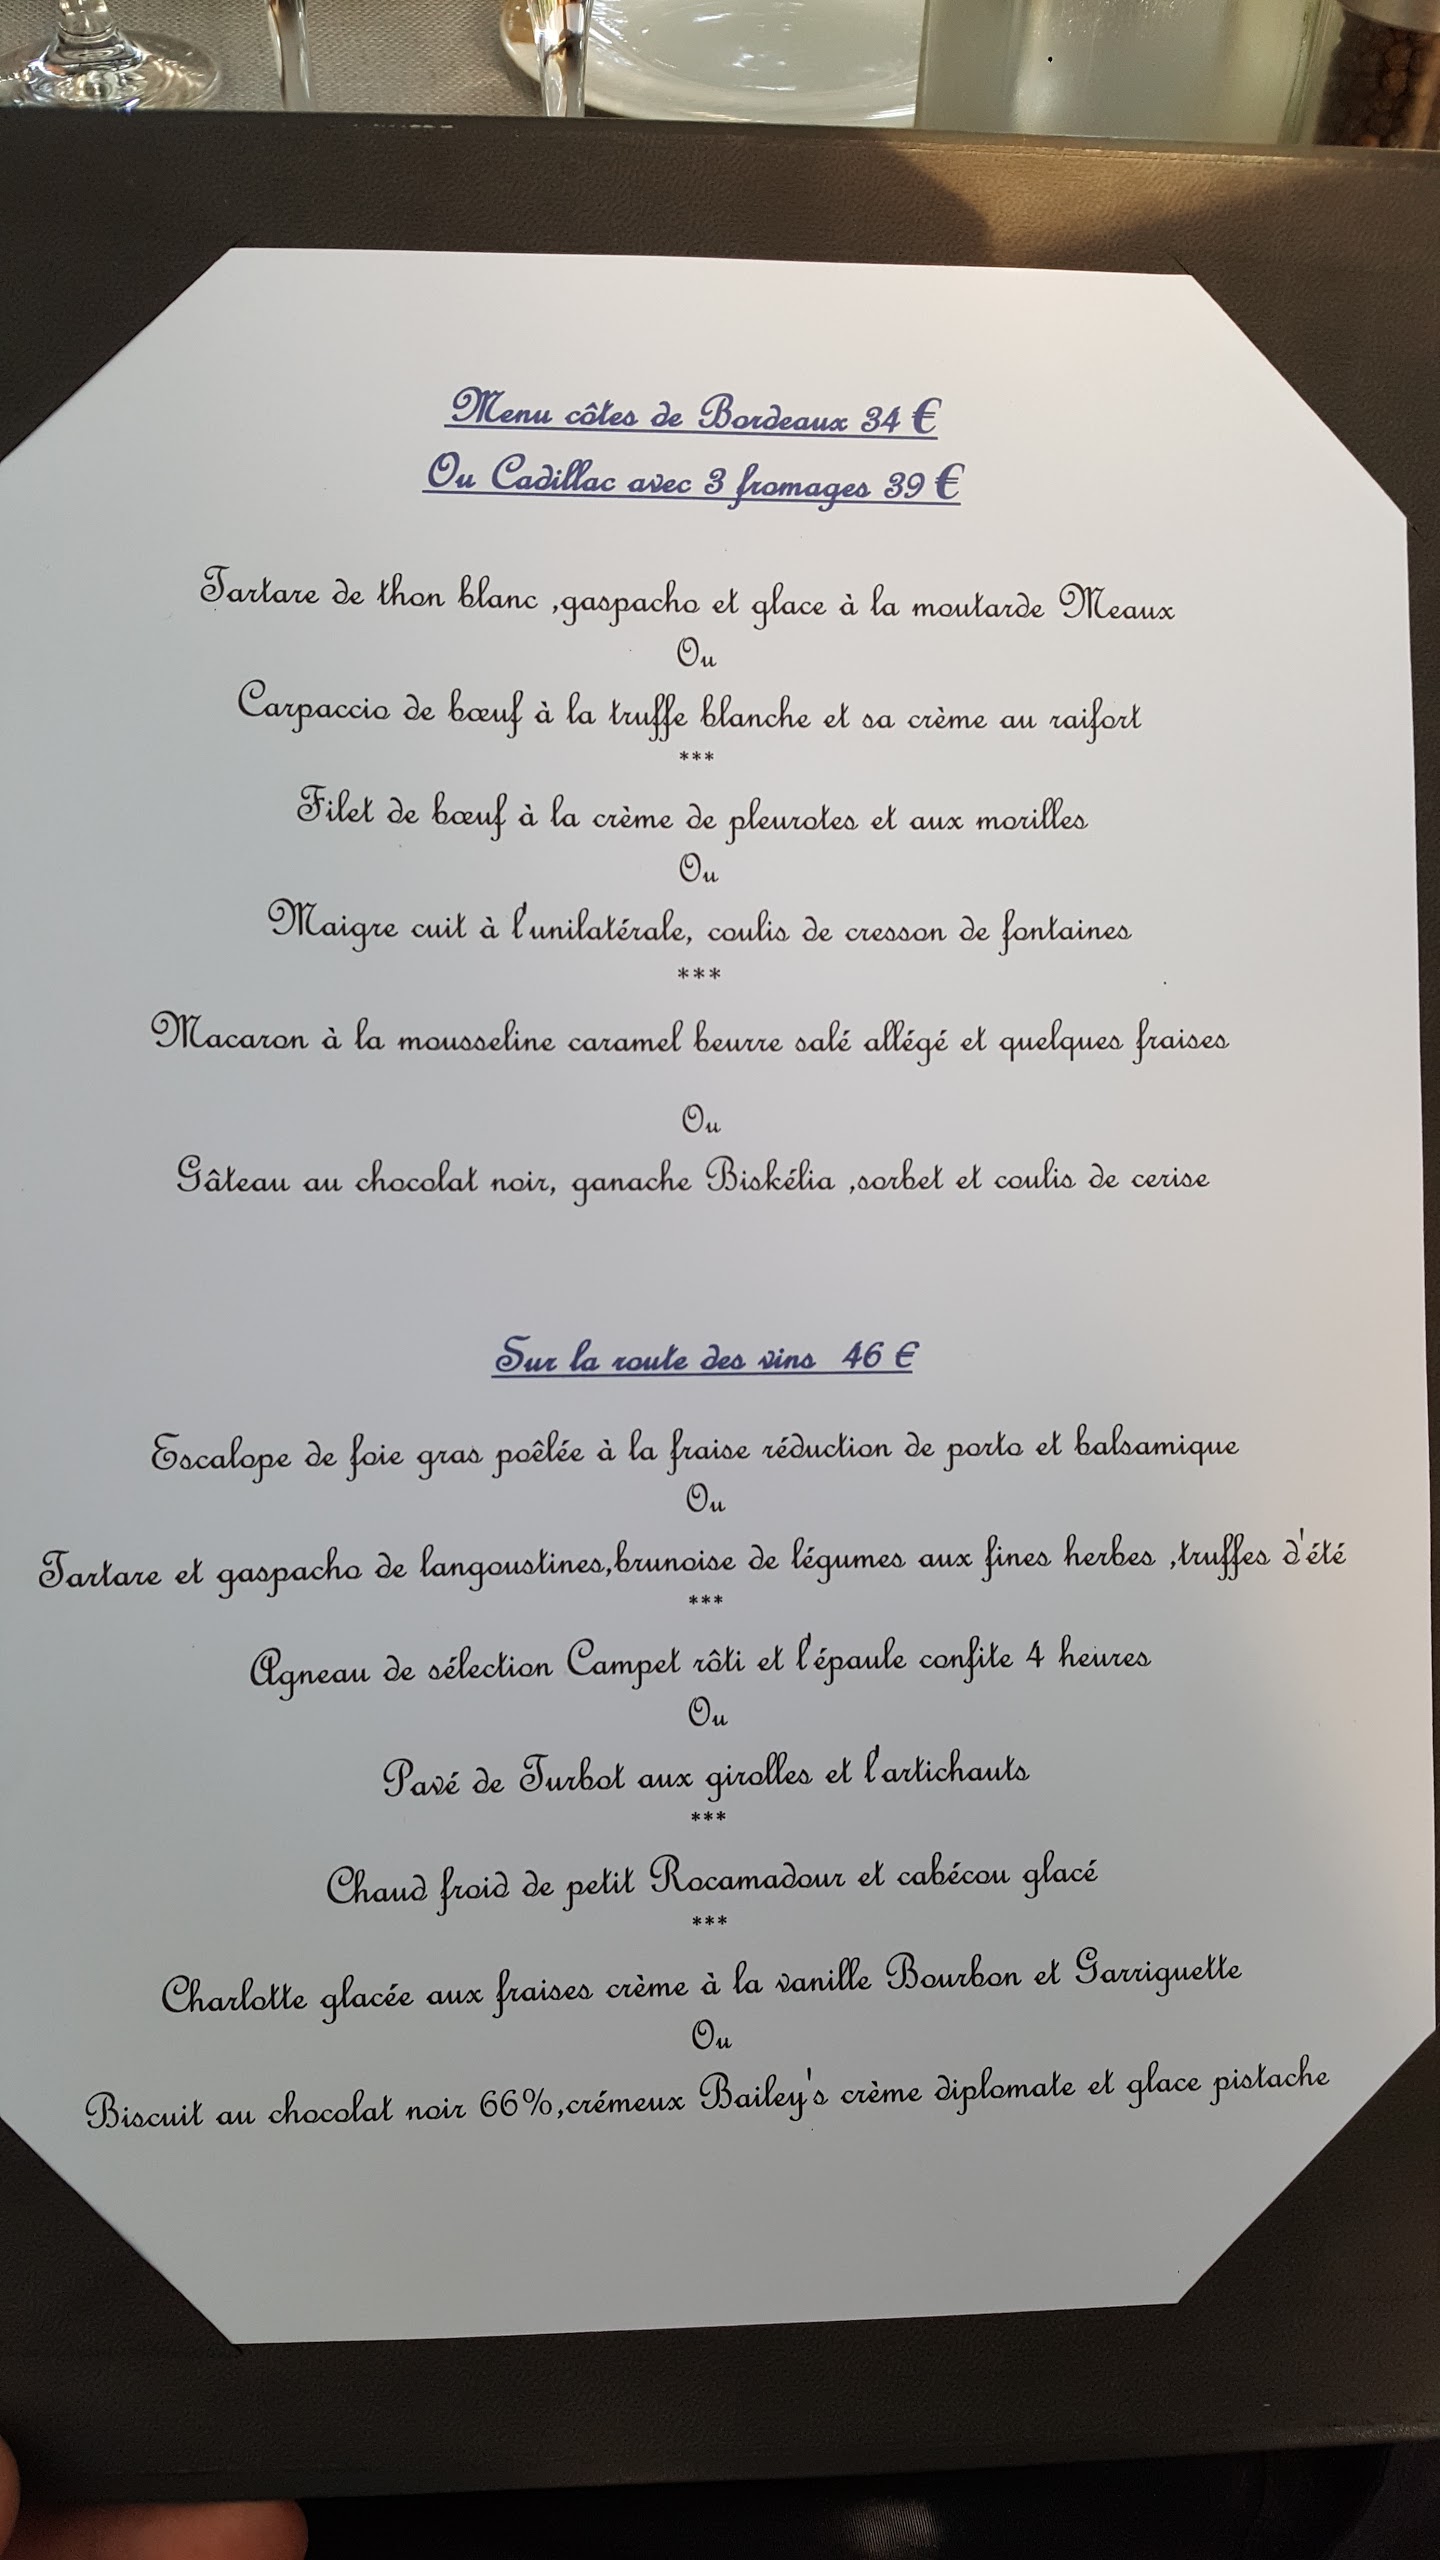 Menu côtes de Bordeaux 34 €
Ou Cadillac avec 3 fromages 39 €
Tartare de thon blanc ,gaspacho et glace à la moutarde Meaux
Ou
Carpaccio de bœuf à la truffe blanche et sa crème au raifort
***
Filet de bœuf à la crème de pleurotes et aux morilles
Ou
Maigre cuit à l'unilatérale, coulis de cresson de fontaines
***
Macaron à la mousseline caramel beurre salé allégé et quelques fraises
Ou
Gâteau au chocolat noir, ganache Biskélia ,sorbet et coulis de cerise
Sur la route des vins 46 €
Escalope de foie gras poêlée à la fraise réduction de porto et balsamique
Ou
Tartare et gaspacho de langoustines,brunoise de légumes aux fines herbes ,truffes d'été
***
Agneau de sélection Campet rôti et l'épaule confite 4 heures
Ou
Pavé de Turbot aux girolles et l'artichauts
***
Chaud froid de petit Rocamadour et cabécou glacé
***
Charlotte glacée aux fraises crème à la vanille Bourbon et Garriguette
Ou
Biscuit au chocolat noir 66%,crémeux Bailey's crème diplomate et glace pistache